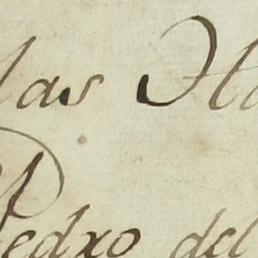 las Ha
Pedro del